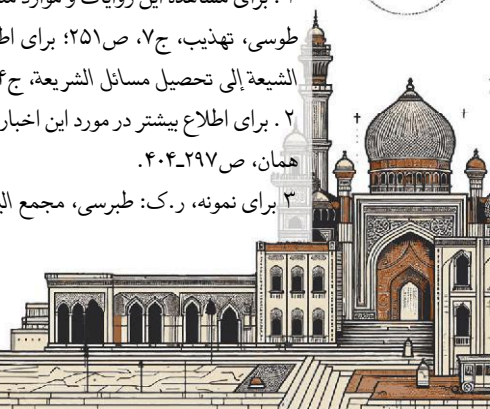 ۱. برای مشاهده این روایات و موارد
طوسی، تهذیب، ج۷، ص۲۵۱؛ برای
الشیعة إلی تحصیل مسائل الشریعة،
۲. برای اطلاع بیشتر در مورد این اخبار
همان، ص۲۹۷ـ۴۰۴.
۳ برای نمونه، ر.ک: طبرسی، مجمع